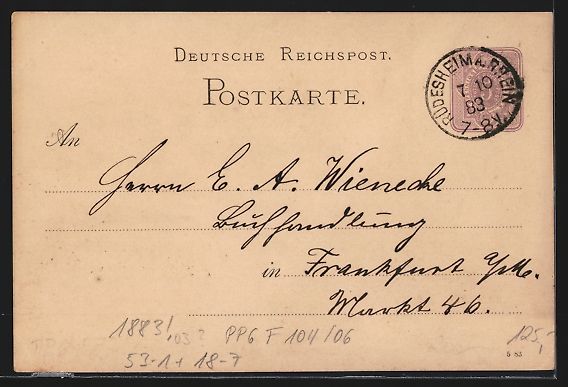 DEUTSCHE REICHSPOST.
POSTKARTE.
RÜDESHEIM A. RHEIN
7 10
83
7-8V.
An
Herrn E. A. Wienecke
Buchhandlung
in Frankfurt a/M.
Markt 46.
1883/
PP6 F 104/06
125,-
53-1+18-7
5 83